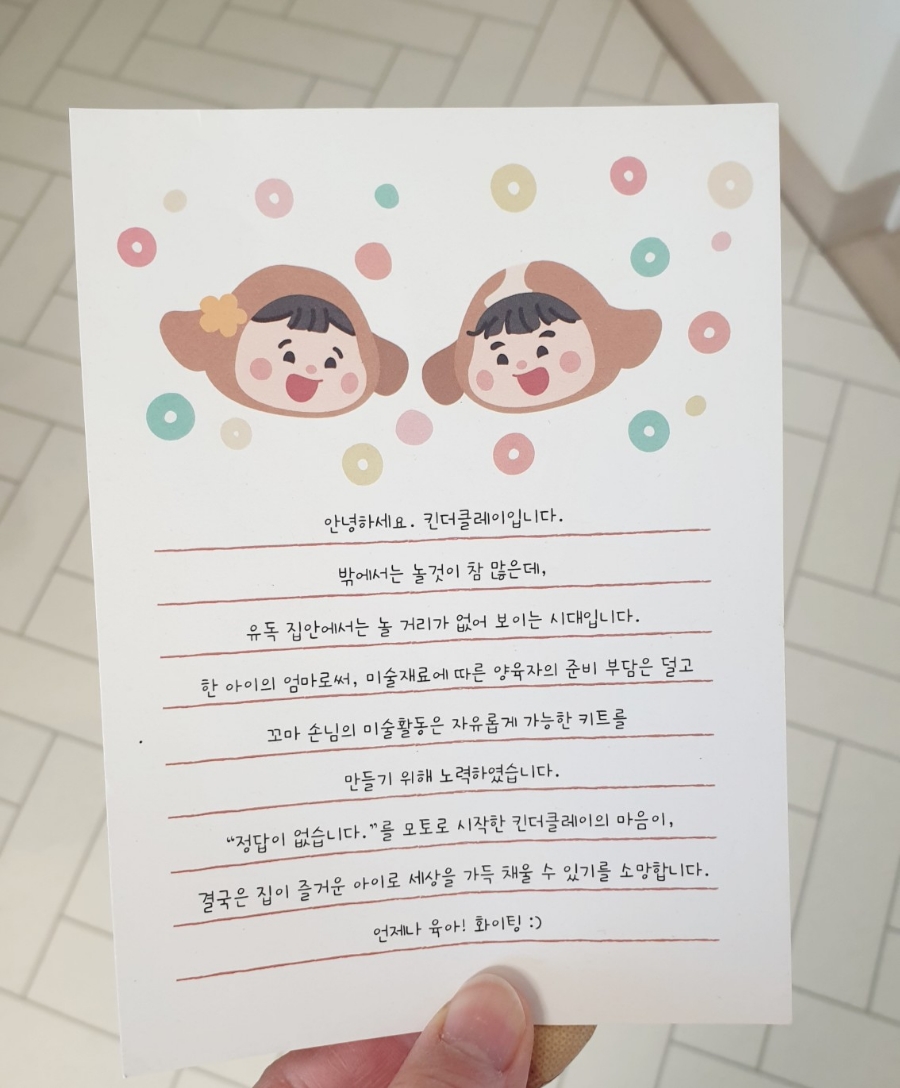 안녕하세요. 킨더클레이입니다.
밖에서는 놀것이 참 많은데,
유독 집안에서는 놀 거리가 없어 보이는 시대입니다.
한 아이의 엄마로써, 미술재료에 따른 양육자의 준비 부담은 덜고
꼬마 손님의 미술활동은 자유롭게 가능한 키트를
만들기 위해 노력하였습니다.
“정답이 없습니다.”를 모토로 시작한 킨더클레이의 마음이,
결국은 집이 즐거운 아이로 세상을 가득 채울 수 있기를 소망합니다.
언제나 육아! 화이팅 :)